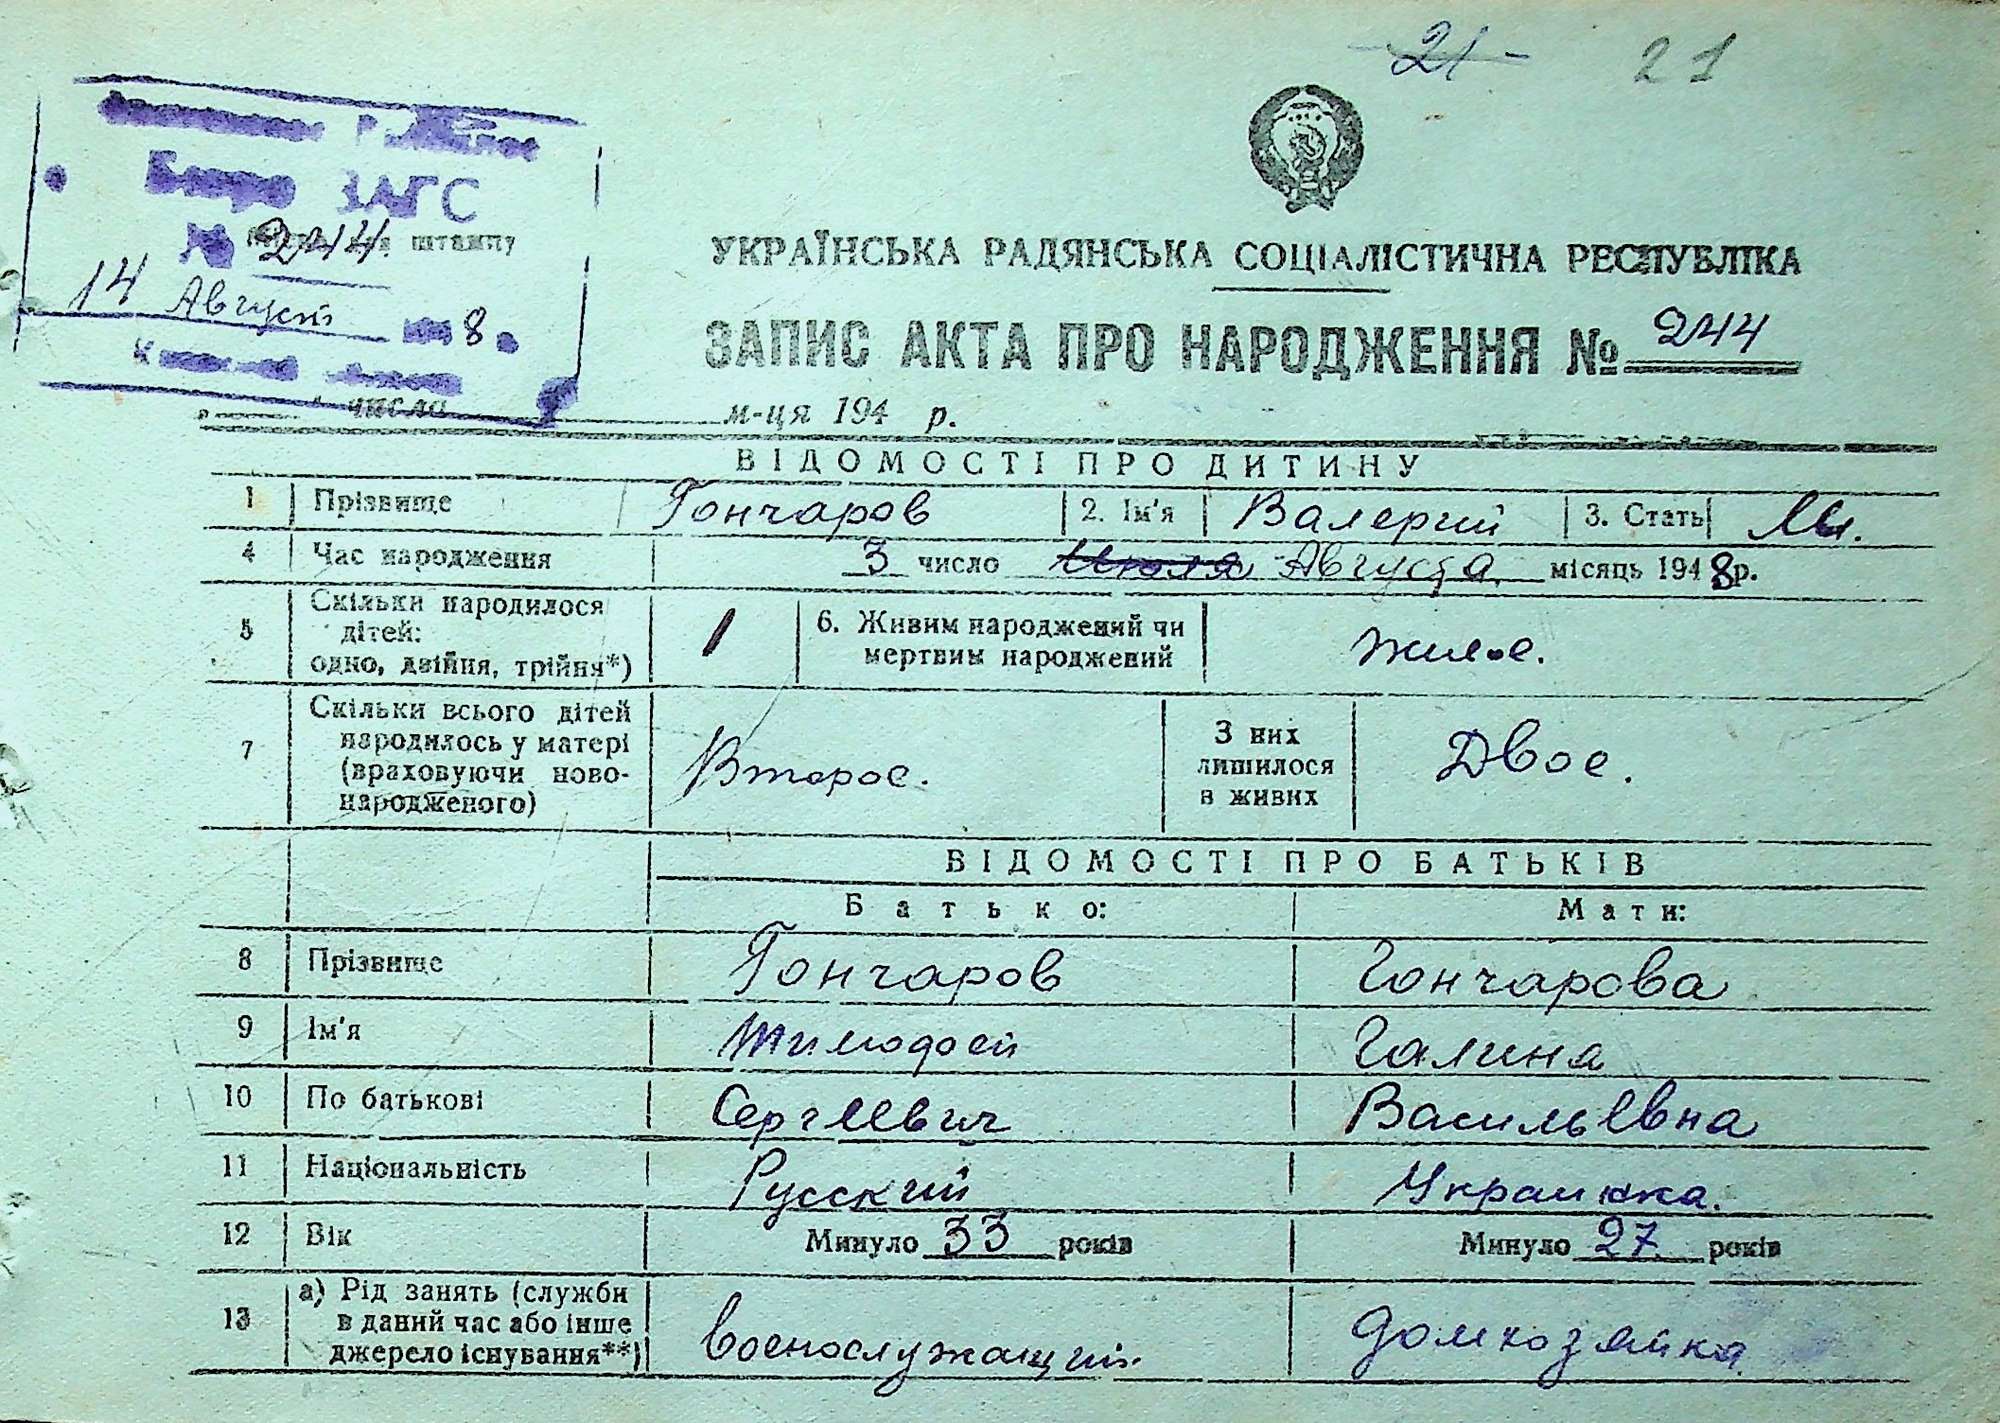 21 21
Бюро ЗАГС
№ 244. штампу
14 Август 1948 г.
УКРАЇНСЬКА РАДЯНСЬКА СОЦІАЛІСТИЧНА РЕСПУБЛІКА
ЗАПИС АКТА ПРО НАРОДЖЕННЯ № 244
числа м-ця 194 р.
ВІДОМОСТІ ПРО ДИТИНУ
1 Прізвище Гончаров 2. Ім'я Валерий 3. Стать М.
4 Час народження 3 число Июля Августа. місяць 1948 р.
5 Скільки народилося
дітей:
одно, двійня, трійня*) 1 6. Живим народжений чи
мертвим народжений живое.
7 Скільки всього дітей
народилось у матері
(враховуючи ново-
народженого) Второе. З них
лишилося
в живих Двое.
ВІДОМОСТІ ПРО БАТЬКІВ
Батько: Мати:
8 Прізвище Гончаров Гончарова
9 Ім'я Тимофей Галина
10 По батькові Сергеевич Васильевна
11 Національність Русский Украинка.
12 Вік Минуло 33 років Минуло 27 років
13 а) Рід занять (служби
в даний час або інше
джерело існування**) военнослужащий домхозяйка